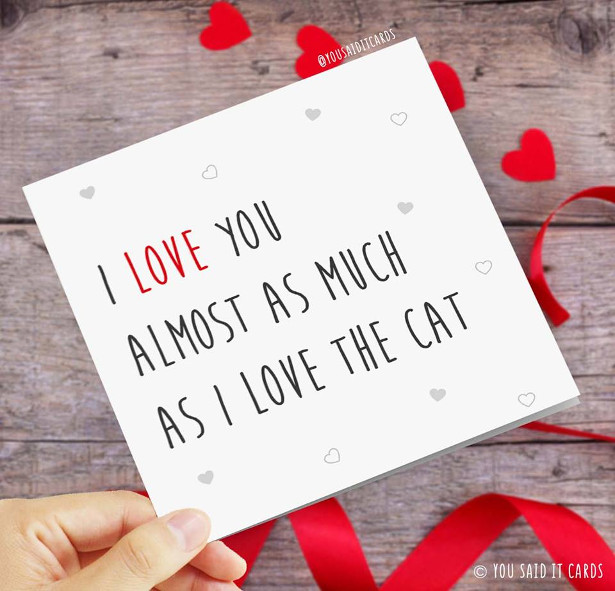 @YOUSAIDITCARDS
I LOVE YOU
ALMOST AS MUCH
AS I LOVE THE CAT
© YOU SAID IT CARDS